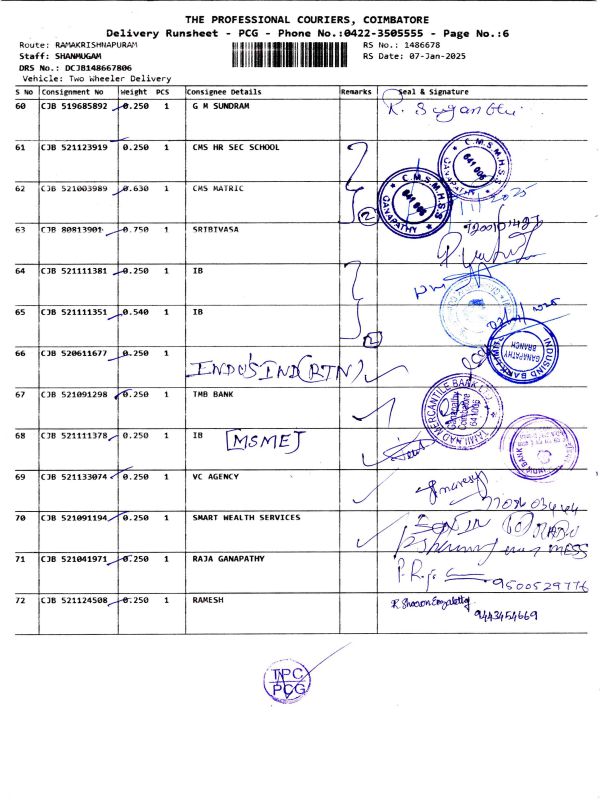 THE PROFESSIONAL COURIERS, COIMBATORE
Delivery Runsheet - PCG - Phone No.:0422-3505555 - Page No.:6
Route: RAMAKRISHNAPURAM
RS No.: 1486678
Staff: SHANMUGAM
RS Date: 07-Jan-2025
DRS No.: DCJB148667806
Vehicle: Two Wheeler Delivery
S No Consignment No Weight PCS Consignee Details Remarks Seal & Signature
60 CJB 519685892 0.250 1 G M SUNDRAM
61 CJB 521123919 0.250 1 CMS HR SEC SCHOOL
C.M.S.M.H.S.S
GANAPATHY
641 006
62 CJB 521003989 0.630 1 CMS MATRIC
2
C.M.S.M.H.S.S
GANAPATHY
641 006
63 CJB 80813901 0.750 1 SRIBIVASA
64 CJB 521111381 0.250 1 IB
65 CJB 521111351 0.540 1 IB
2
66 CJB 520611677 0.250 1 INDUSIND (RTN)
INDUSIND BANK LIMITED
GANAPATHY
BRANCH
67 CJB 521091298 0.250 1 TMB BANK
TAMILNAD MERCANTILE BANK LTD.
Ganapathy
Coimbatore
68 CJB 521111378 0.250 1 IB [MSME]
69 CJB 521133074 0.250 1 VC AGENCY
70 CJB 521091194 0.250 1 SMART WEALTH SERVICES
71 CJB 521041971 0.250 1 RAJA GANAPATHY
9500529776
72 CJB 521124508 0.250 1 RAMESH
9443454669
TPC
PCG